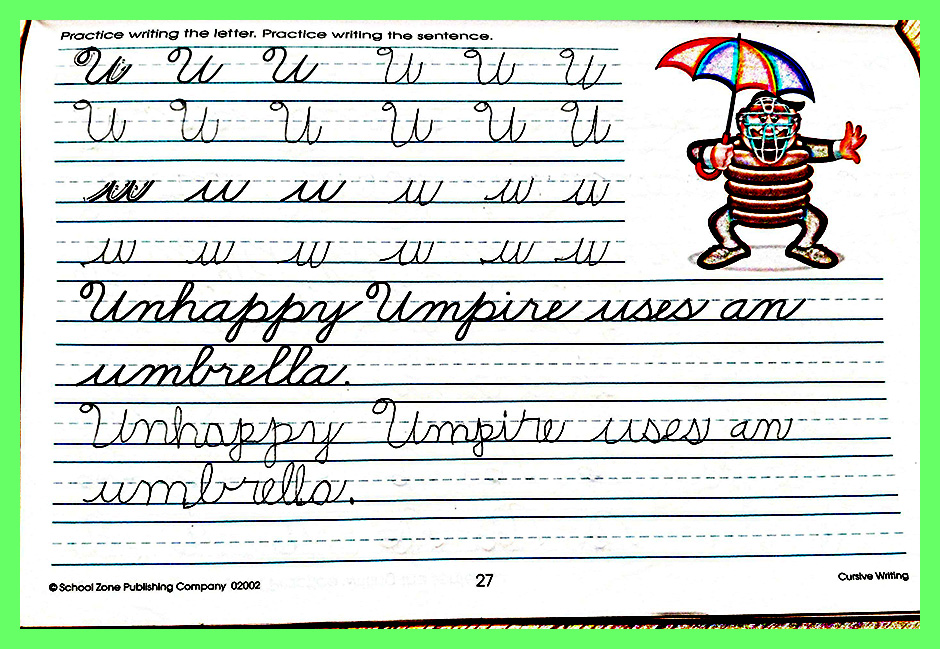 Practice writing the letter. Practice writing the sentence.
U U U U U U
U U U U U U
u u u u u u
u u u u u u
Unhappy Umpire uses an
umbrella.
Unhappy Umpire uses an
umbrella.
© School Zone Publishing Company 02002
27
Cursive Writing